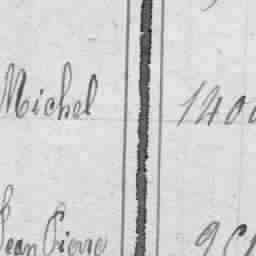 Michel 1400
Jean Pierre